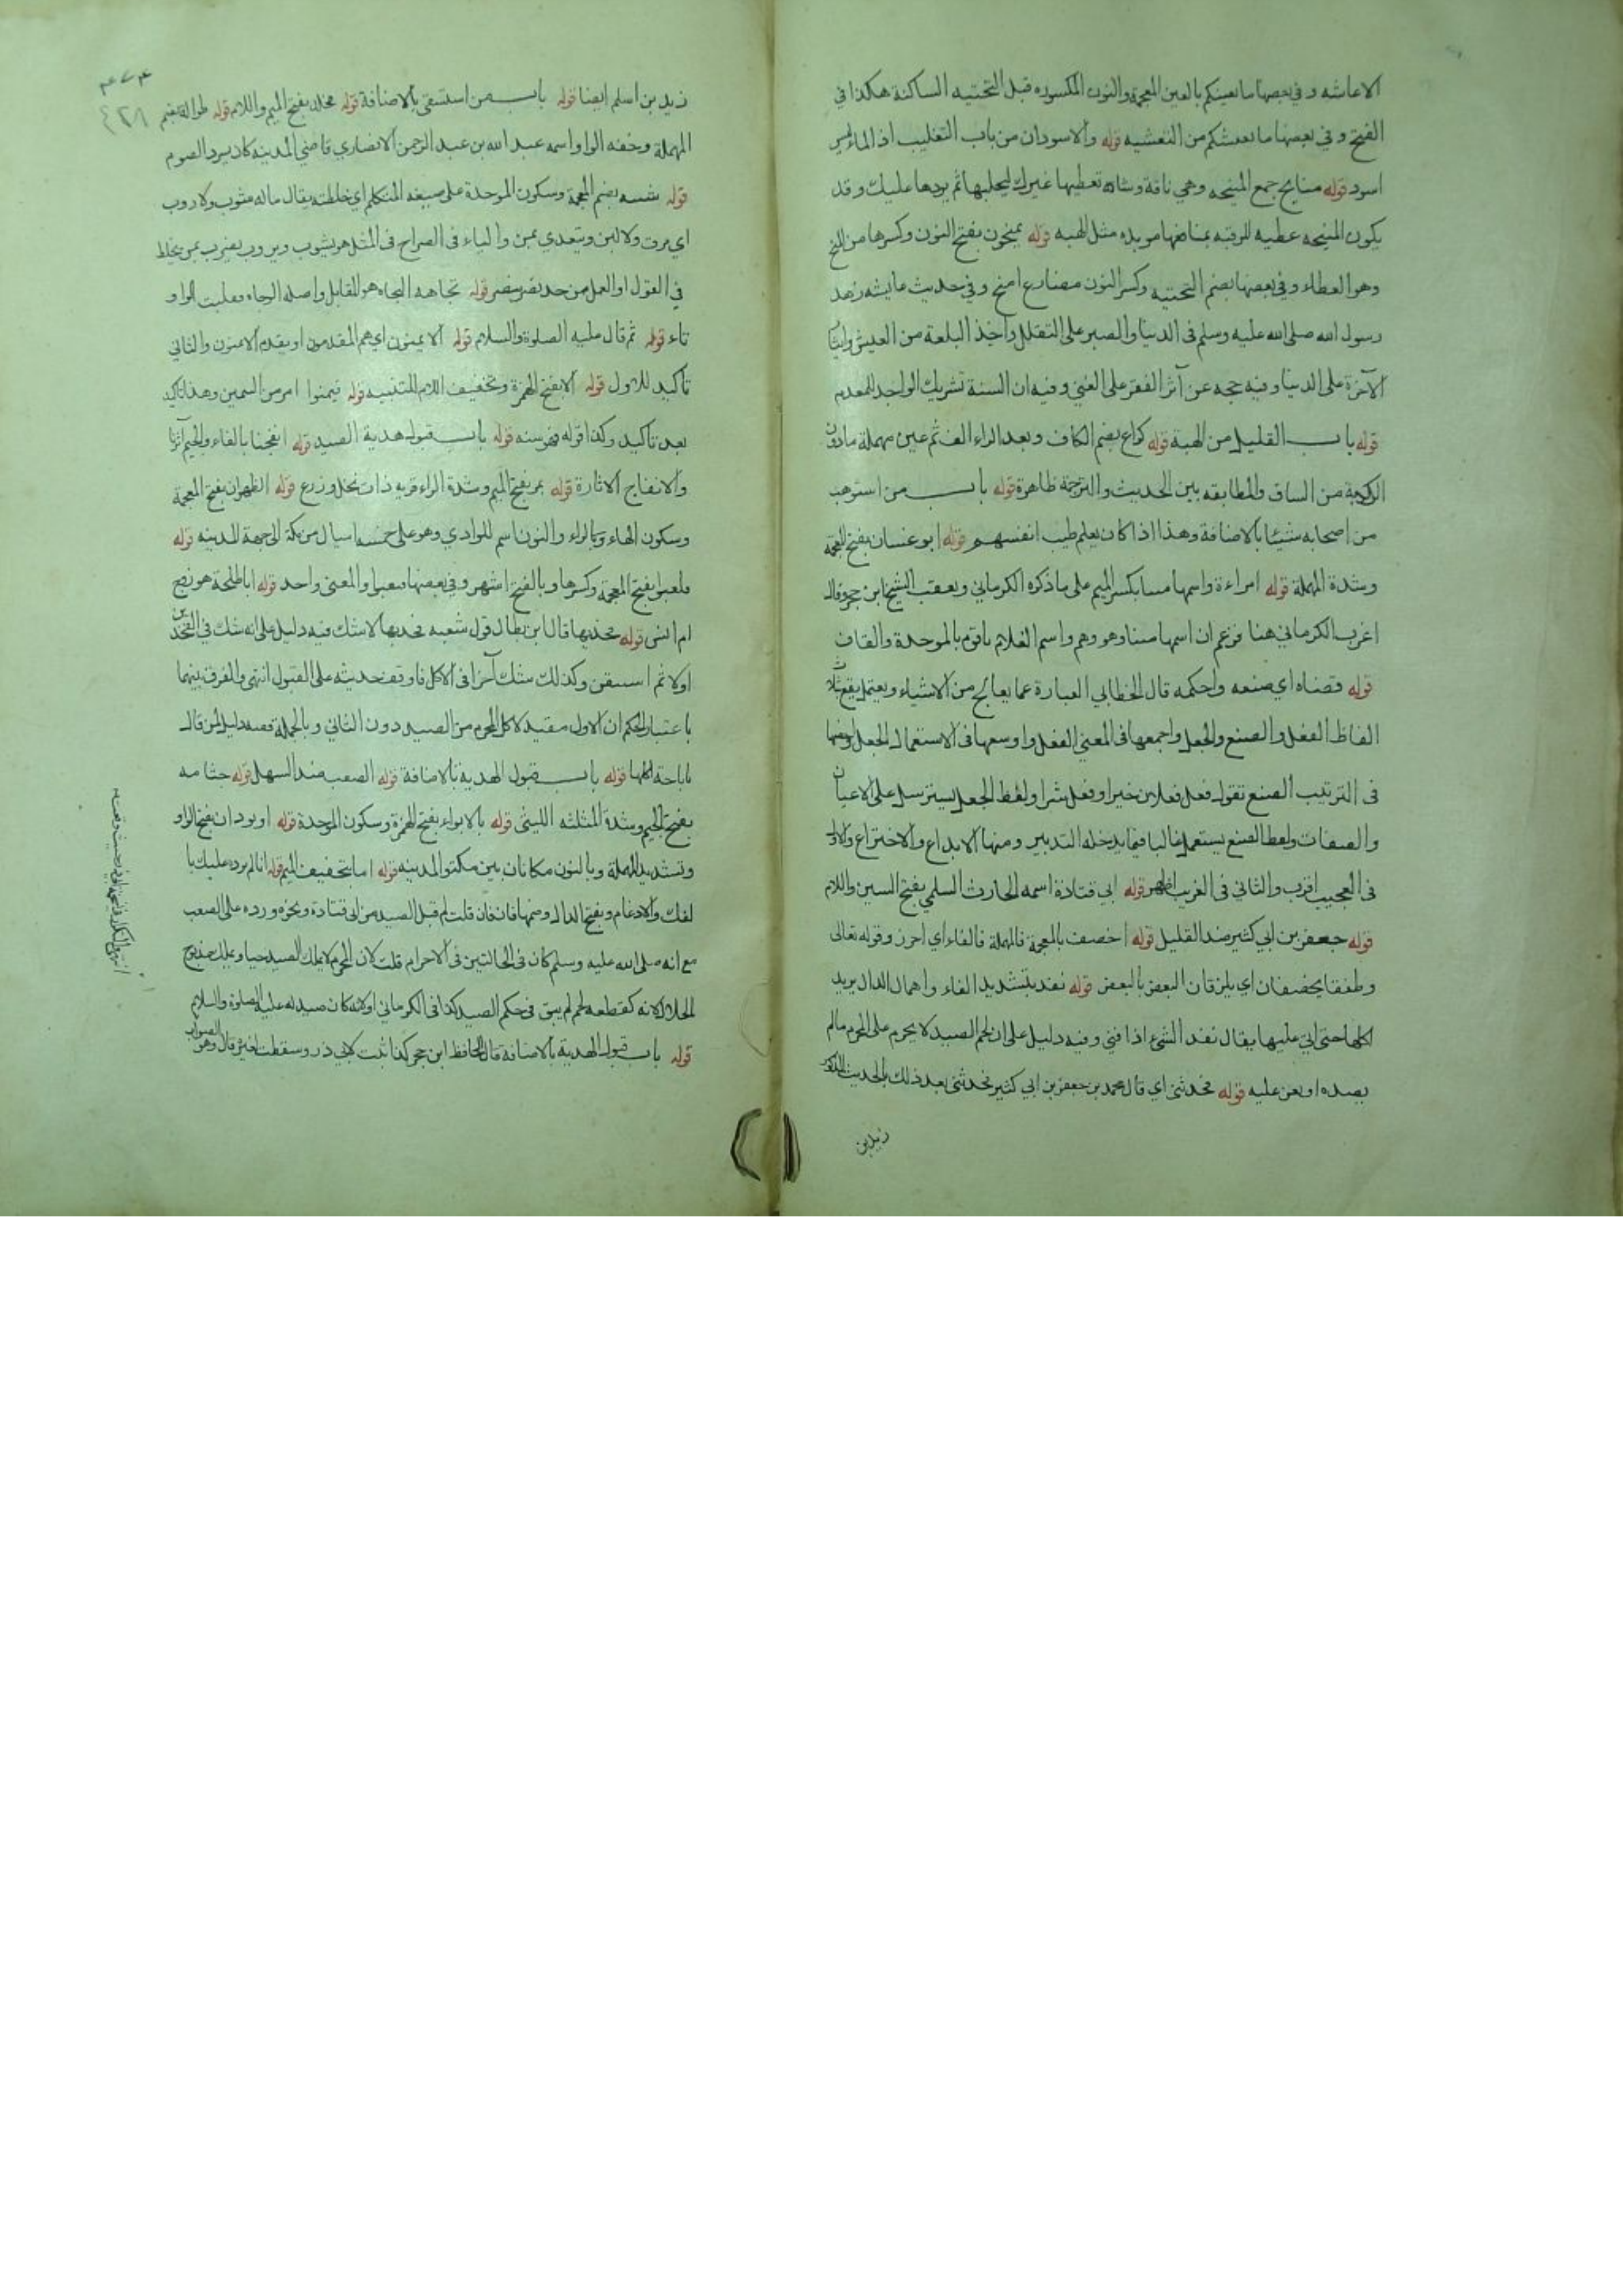 الاعاشه وفي بعضها ما يغنيكم بالغين المعجمة والنون المكسوره قبل التحتيه الساكنة هكذا في
الفتح وفي بعضها ما يعيشكم من التعشيه قوله والاسودان من باب التغليب اذ الماء ليس
اسود قوله منايح جمع المنيحه وهي ناقة وشاة تعطيها غيرك ليحلبها ثم يردها عليك وقد
يكون المنيحه عطيه للرقبه بمنافعها موبده مثل الهبه قوله يمنحون بفتح النون وكسرها من المنح
وهو العطاء وفي بعضها بضم التحتيه وكسر النون مضارع امنح وفي حديث عايشه زهد
رسول الله صلى الله عليه وسلم فى الدنيا والصبر على التقلل واخذ البلغة من العيش وايثار
الآخرة على الدنيا وفيه حجه عن آثر الفقر على الغني وفيه ان السنة تشريك الواجد للمعدم
قوله باب القليل من الهبة قوله كراع بضم الكاف وبعد الراء الف ثم عين مهملة مادون
الركبة من الساق والمطابقه بين الحديث والترجمة ظاهرة قوله باب من استوهب
من اصحابه شيئا بالاضافة وهذا اذا كان يعلم طيب انفسهم قوله ابو غسان بفتح المعجمة
وشدة المهملة قوله امراءة واسمها مينا بكسر الميم على ما ذكره الكرماني وتعقب الشيخ ابن حجر وقال
اغرب الكرماني هنا فزعم ان اسمها مينا وهو وهم واسم الغلام باقوم بالموحدة والقاف
قوله قضاه اي صنعه واحكمه قال الخطابي العبارة عما يعالج من الاشياء ويعتمل يقع بثلاث
الفاظ الفعل والصنع والجعل واجمعها فى المعنى الفعل واوسعها فى الاستعمال الجعل واخصها
فى الترتيب الصنع تقول فعل فعلان خيرا وفعل شرا ولفظ الجعل يسترسل على الاعيان
والصفات ولفظ الصنع يستعمل غالبا فيما يدخله التدبير ومنها الابداع والاختراع والاول
فى العجيب اقرب والثاني فى الغريب اظهر قوله ابي قتادة اسمه الحارث السلمي بفتح السين واللام
قوله جعفر بن ابي كثير ضد القليل قوله اخصف بالمعجمة فالمهملة فالفاء اي اخرز وقوله تعالى
وطفقا يخصفان اي يلزقان البعض بالبعض قوله نفد بتشديد الفاء واهمال الدال يريد
اكلها حتى اتي عليها يقال نفد الشيء اذا فني وفيه دليل على ان لحم الصيد لا يحرم على المحرم مالم
يصده او يعن عليه قوله فحدثني اي قال محمد بن جعفر بن ابي كثير فحدثني بعد ذلك بالحديث المذكور
زيد بن
٤٢٨
زيد بن اسلم ايضا قوله باب من استسقى بالاضافة قوله مخلد بفتح الميم واللام قوله طوالة بضم
المهملة وخفه الواو اسمه عبد الله بن عبد الرحمن الانصاري قاضي المدينه كان يسرد الصوم
قوله شبته بضم المعجمة وسكون الموحدة على صيغه المتكلم اي خلطته يقال ماله مشوب ولا روب
اي مرق ولا لبن ويتعدي بمن والياء فى الصراح فى المثل هو يشوب ويروب يضرب بمن يخلط
في القول او العمل من حد نصر ينصر قوله تجاهه التجاه هو المقابل واصله الوجاه وقلبت الواو
تاء قوله ثم قال عليه الصلوة والسلام قوله الايمنون اي هم المقدمون او يقدم الايمنون والثاني
تاكيد للاول قوله الا بفتح الهمزة وتخفيف اللام للتنبيه قوله فيمنوا امر من اليمين وهذا تاكيد
بعد تاكيد وكذا قوله فهو سنه قوله باب قبول هدية الصيد قوله انفجنا بالفاء والجيم اثرنا
والانفاج الاثارة قوله بمر بفتح الميم وشدة الراء قريه ذات نخل وزرع قوله الظهران بفتح المعجمة
وسكون الهاء وبالراء والنون اسم للوادي وهو على خمسه اميال من مكة الى جهة المدينه قوله
فلغبوا بفتح المعجمة وكسرها وبالفتح اشهر وفي بعضها فتعبوا والمعنى واحد قوله اباطلحة هو زوج
ام انس قوله فخذيها قال ابن بطال قول شعبه فخذيها لا شك فيه دليل على انه شك في الفخذين
اولا ثم استيقن وكذلك شك آخرا فى الاكل فاوقف حديثه على القبول انتهى والفرق بينهما
باعتبار الحكم ان الاول مقيد لاكل المحرم من الصيد دون الثاني وبالجملة ففيه دليل لمن قال
باباحة اكلها قوله باب قبول الهدية بالاضافة قوله الصعب ضد السهل قوله جثامه
بفتح الجيم وشدة المثلثه الليثى قوله بالابواء بفتح الهمزة وسكون الموحدة قوله او بودان بفتح الواو
وتشديد المهملة وبالنون مكانان بين مكة والمدينه قوله اما بتخفيف الميم قوله انا لم نرده عليك با
لفك والادغام وبفتح الدال وضمها فان قلت لم قبل الصيد من ابي قتادة ونحوه ورده على الصعب
مع انه صلى الله عليه وسلم كان فى الحالتين فى الاحرام قلت لان المحرم لا يملك الصيد حيا ويملك مذبوح
الحلال لانه كقطعه لحم لم يبق فى حكم الصيد كذا فى الكرماني اولانه كان صيد له عليه الصلوة والسلام
قوله باب قبول الهدية بالاضافة قال الحافظ ابن حجر كذا ثبت لابي ذر وسقطت لغيره قال وهو الصواب